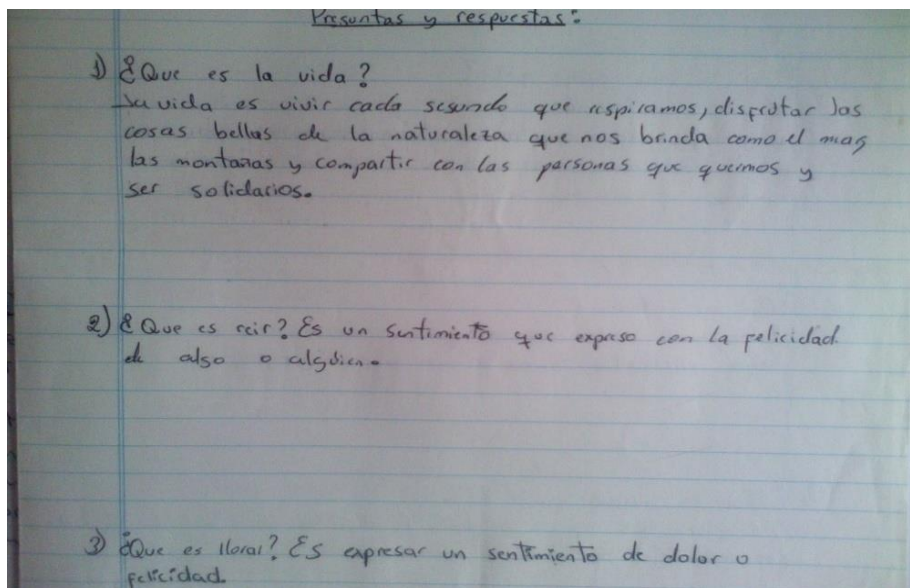 Preguntas y respuestas:
1) ¿Que es la vida?
La vida es vivir cada segundo que respiramos, disfrutar las
cosas bellas de la naturaleza que nos brinda como el mar
las montañas y compartir con las personas que queremos y
ser solidarios.
2) ¿Que es reir? Es un sentimiento que expreso con la felicidad
de algo o alguien.
3) ¿Que es llorar? Es expresar un sentimiento de dolor o
felicidad.